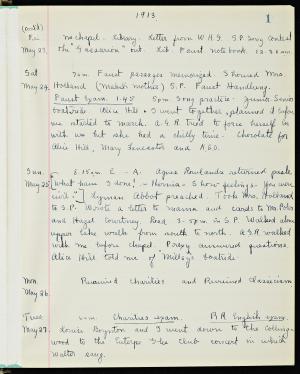 1913
1
(cont'd)
Fri. no chapel. Library. Letter from W.H.G. S.P. Song Contest
May 23. the " " out. Lib. Faust notebook. 12:30 a.m.
Sat 7 a.m. Faust passages memorized. I showed Mrs.
May 24. Holland (Mabel's mother) S.P. Faust Handlung.
Faust Exam. 1.45 5 p.m. Song practice. Junior Senior
boatride. Alice Hill & I went together, planned it before
we started to march. A.G.R. tried to force herself in
with us but she had a chilly time. Chocolate for
Alice Hill, Mary Lancaster and A.E.O.
Sun. 6.15 p.m. C - A. Agnes Rowlands returned pale
May 25. "What have I done" - Hernia - I show feelings. You were
civil." Lyman Abbot preached. Took Mrs. Holland
to S.P. Wrote a letter to mama and cards to Mr. Peter
and Hazel Courtney. Read 3-5 p.m. in S.P. Walked along
upper lake walk from south to north. A.G.R. walked
with me before chapel. Prexy answered questions.
Alice Hill told me of Milley's boatride
Mon. Reviewed Charities and Reviewed Classicism
May 26.
Tues a.m. Charities exam. B.R. English exam.
May 27. Louise Boynton and I went down to the Colling-
wood to the Euterpe Glee Club concert in which
Walter sang.